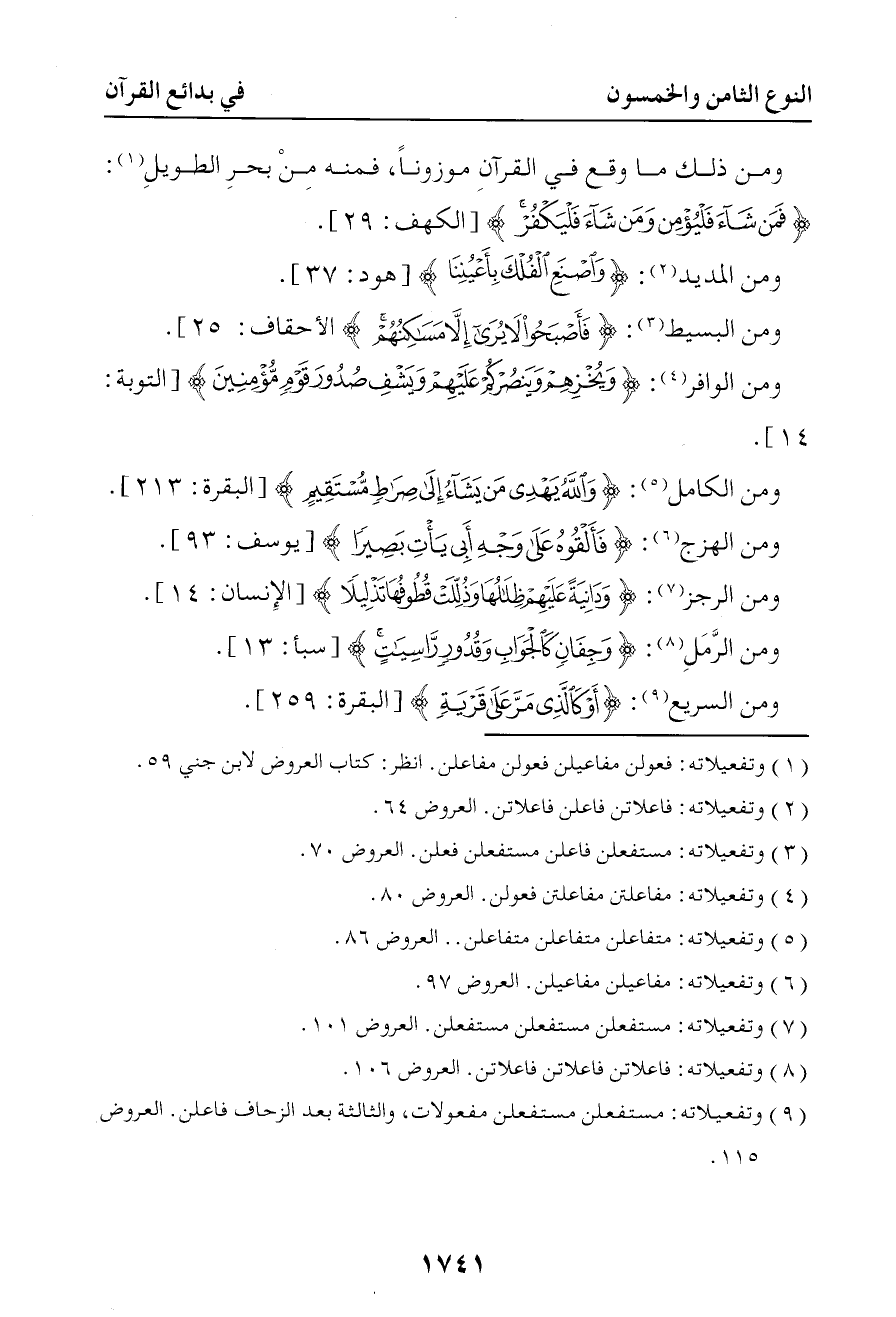 النوع الثامن والخمسون في بدائع القرآن
ومن ذلك ما وقع في القرآنِ موزوناً، فمنه مِنْ بحرِ الطويلِ(١):
﴿ فَمَن شَآءَ فَلْيُؤْمِن وَمَن شَآءَ فَلْيَكْفُرْ ۚ ﴾ [الكهف: ٢٩].
ومن المديد(٢): ﴿ وَٱصْنَعِ ٱلْفُلْكَ بِأَعْيُنِنَا ﴾ [هود: ٣٧].
ومن البسيط(٣): ﴿ فَأَصْبَحُوا۟ لَا يُرَىٰٓ إِلَّا مَسَـٰكِنُهُمْ ۚ ﴾ الأحقاف: ٢٥].
ومن الوافر(٤): ﴿ وَيُخْزِهِمْ وَيَنصُرْكُمْ عَلَيْهِمْ وَيَشْفِ صُدُورَ قَوْمٍ مُّؤْمِنِينَ ﴾ [التوبة:
١٤].
ومن الكامل(٥): ﴿ وَٱللَّهُ يَهْدِى مَن يَشَآءُ إِلَىٰ صِرَٰطٍ مُّسْتَقِيمٍ ﴾ [البقرة: ٢١٣].
ومن الهزج(٦): ﴿ فَأَلْقُوهُ عَلَىٰ وَجْهِ أَبِى يَأْتِ بَصِيرًا ﴾ [يوسف: ٩٣].
ومن الرجز(٧): ﴿ وَدَانِيَةً عَلَيْهِمْ ظِلَـٰلُهَا وَذُلِّلَتْ قُطُوفُهَا تَذْلِيلًا ﴾ [الإنسان: ١٤].
ومن الرَّمَلِ(٨): ﴿ وَجِفَانٍ كَٱلْجَوَابِ وَقُدُورٍ رَّاسِيَـٰتٍ ۚ ﴾ [سبأ: ١٣].
ومن السريع(٩): ﴿ أَوْ كَٱلَّذِى مَرَّ عَلَىٰ قَرْيَةٍ ﴾ [البقرة: ٢٥٩].
(١) وتفعيلاته: فعولن مفاعيلن فعولن مفاعلن. انظر: كتاب العروض لابن جني ٥٩.
(٢) وتفعيلاته: فاعلاتن فاعلن فاعلاتن. العروض ٦٤.
(٣) وتفعيلاته: مستفعلن فاعلن مستفعلن فعلن. العروض ٧٠.
(٤) وتفعيلاته: مفاعلتن مفاعلتن فعولن. العروض ٨٠.
(٥) وتفعيلاته: متفاعلن متفاعلن متفاعلن.. العروض ٨٦.
(٦) وتفعيلاته: مفاعيلن مفاعيلن. العروض ٩٧.
(٧) وتفعيلاته: مستفعلن مستفعلن مستفعلن. العروض ١٠١.
(٨) وتفعيلاته: فاعلاتن فاعلاتن فاعلاتن. العروض ١٠٦.
(٩) وتفعيلاته: مستفعلن مستفعلن مفعولات، والثالثة بعد الزحاف فاعلن. العروض
١١٥.
١٧٤١